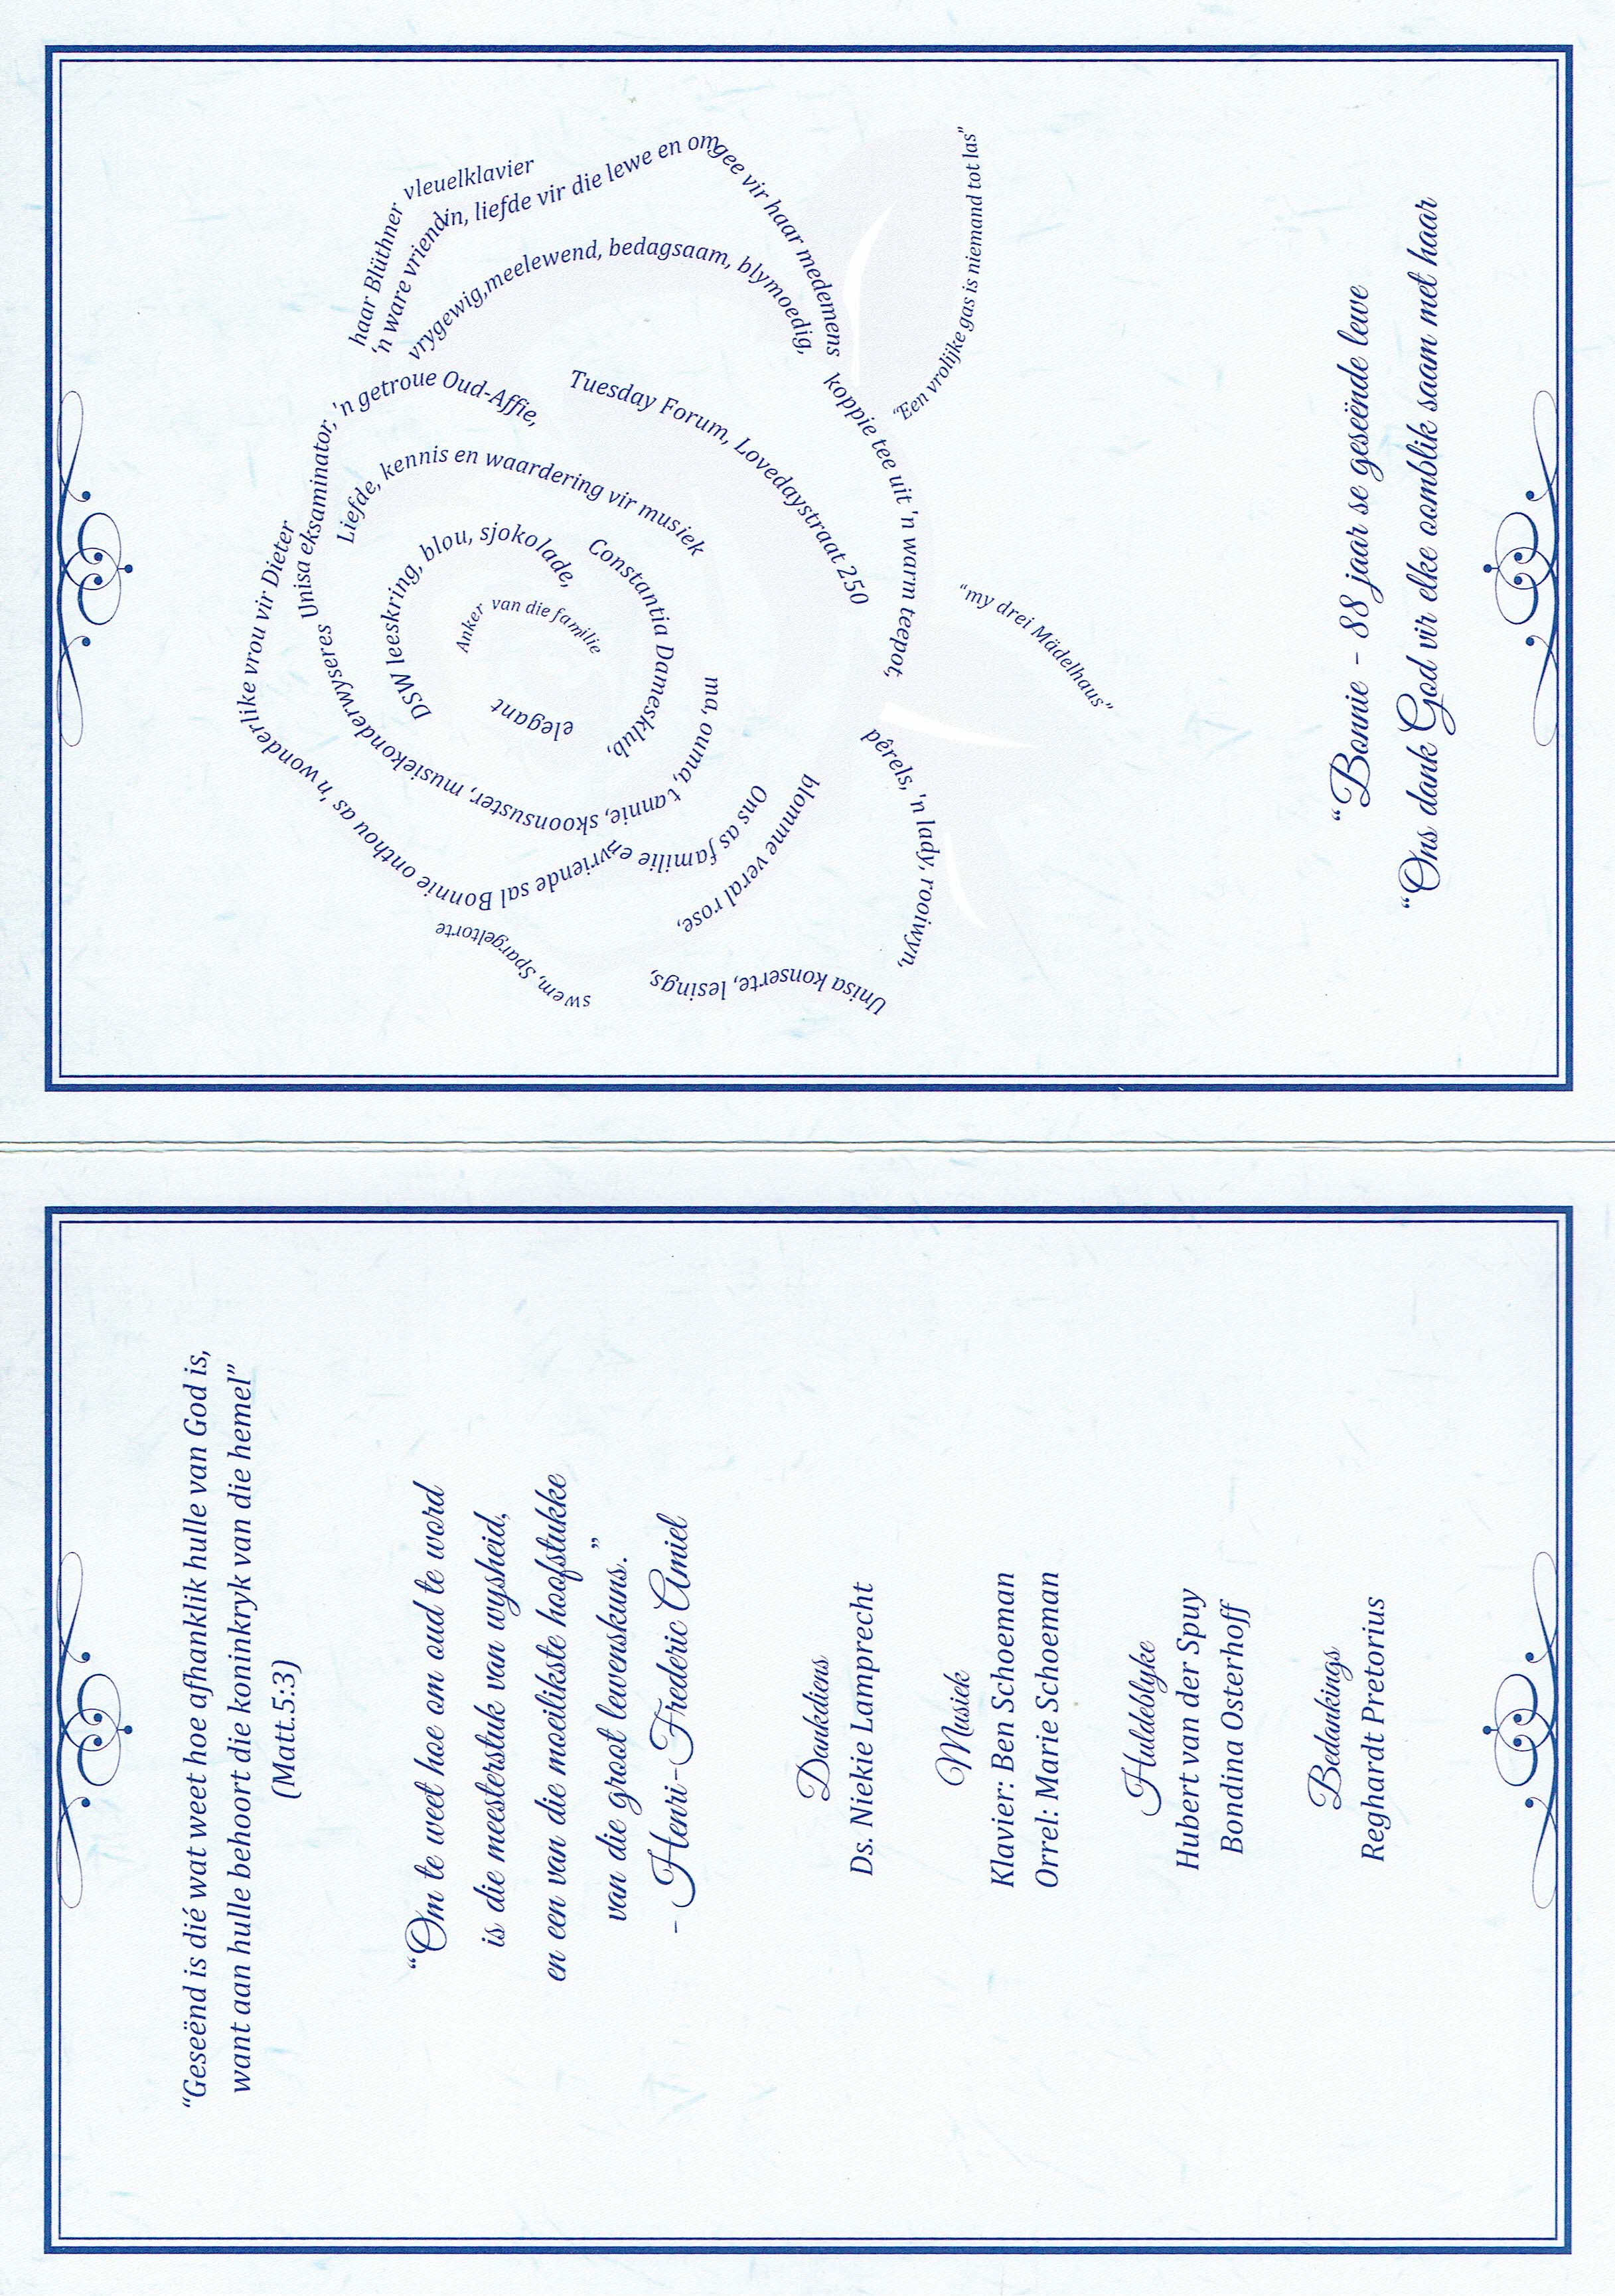 “Geseënd is dié wat weet hoe afhanklik hulle van God is,
want aan hulle behoort die koninkryk van die hemel”
(Matt.5:3)
“Om te weet hoe om oud te word
is die meesterstuk van wysheid,
en een van die moeilikste hoofstukke
van die groot lewenskuns.”
- Henri-Frederic Amiel
Dankdiens
Ds. Niekie Lamprecht
Musiek
Klavier: Ben Schoeman
Orrel: Marie Schoeman
Huldeblyke
Hubert van der Spuy
Bondina Osterhoff
Bedankings
Reghardt Pretorius
Ons as familie en vriende sal Bonnie onthou as 'n wonderlike vrou vir Dieter
ma, ouma, tannie, skoonsuster, musiekonderwyseres
Unisa eksaminator, 'n getroue Oud-Affie,
Liefde, kennis en waardering vir musiek
DSW leeskring, blou, sjokolade,
Constantia Damesklub,
Anker van die familie
elegant
Tuesday Forum, Lovedaystraat 250
haar Blüthner vleuelklavier
'n ware vriendin, liefde vir die lewe en omgee vir haar medemens
vrygewig,meelewend, bedagsaam, blymoedig,
koppie tee uit 'n warm teepot,
swem, Spargeltorte
blomme veral rose,
Unisa konserte, lesings,
pêrels, 'n lady, rooiwyn,
“Een vrolijke gas is niemand tot las”
“my drei Mädelhaus”
“Bonnie - 88 jaar se geseënde lewe
“Ons dank God vir elke oomblik saam met haar